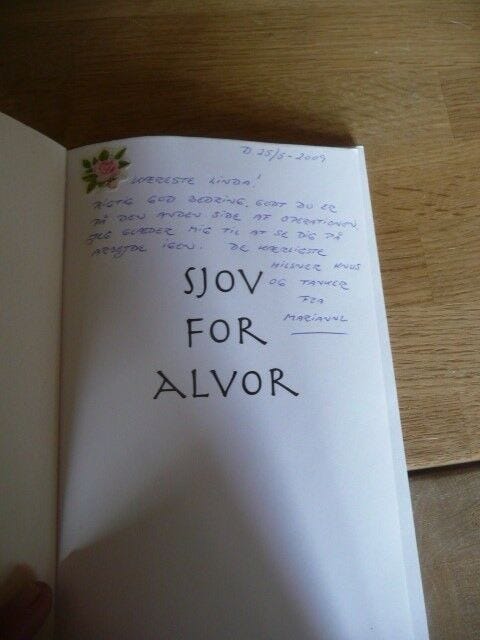 D. 25/5-2009
KÆRESTE LINDA!
RIGTIG GOD BEDRING, GODT DU ER
PÅ DEN ANDEN SIDE AF OPERATIONEN.
JEG GLÆDER MIG TIL AT SE DIG PÅ
ARBEJDE IGEN. DE KÆRLIGSTE
HILSNER KNUS
OG TANKER
FRA
MARIANNE
SJOV
FOR
ALVOR